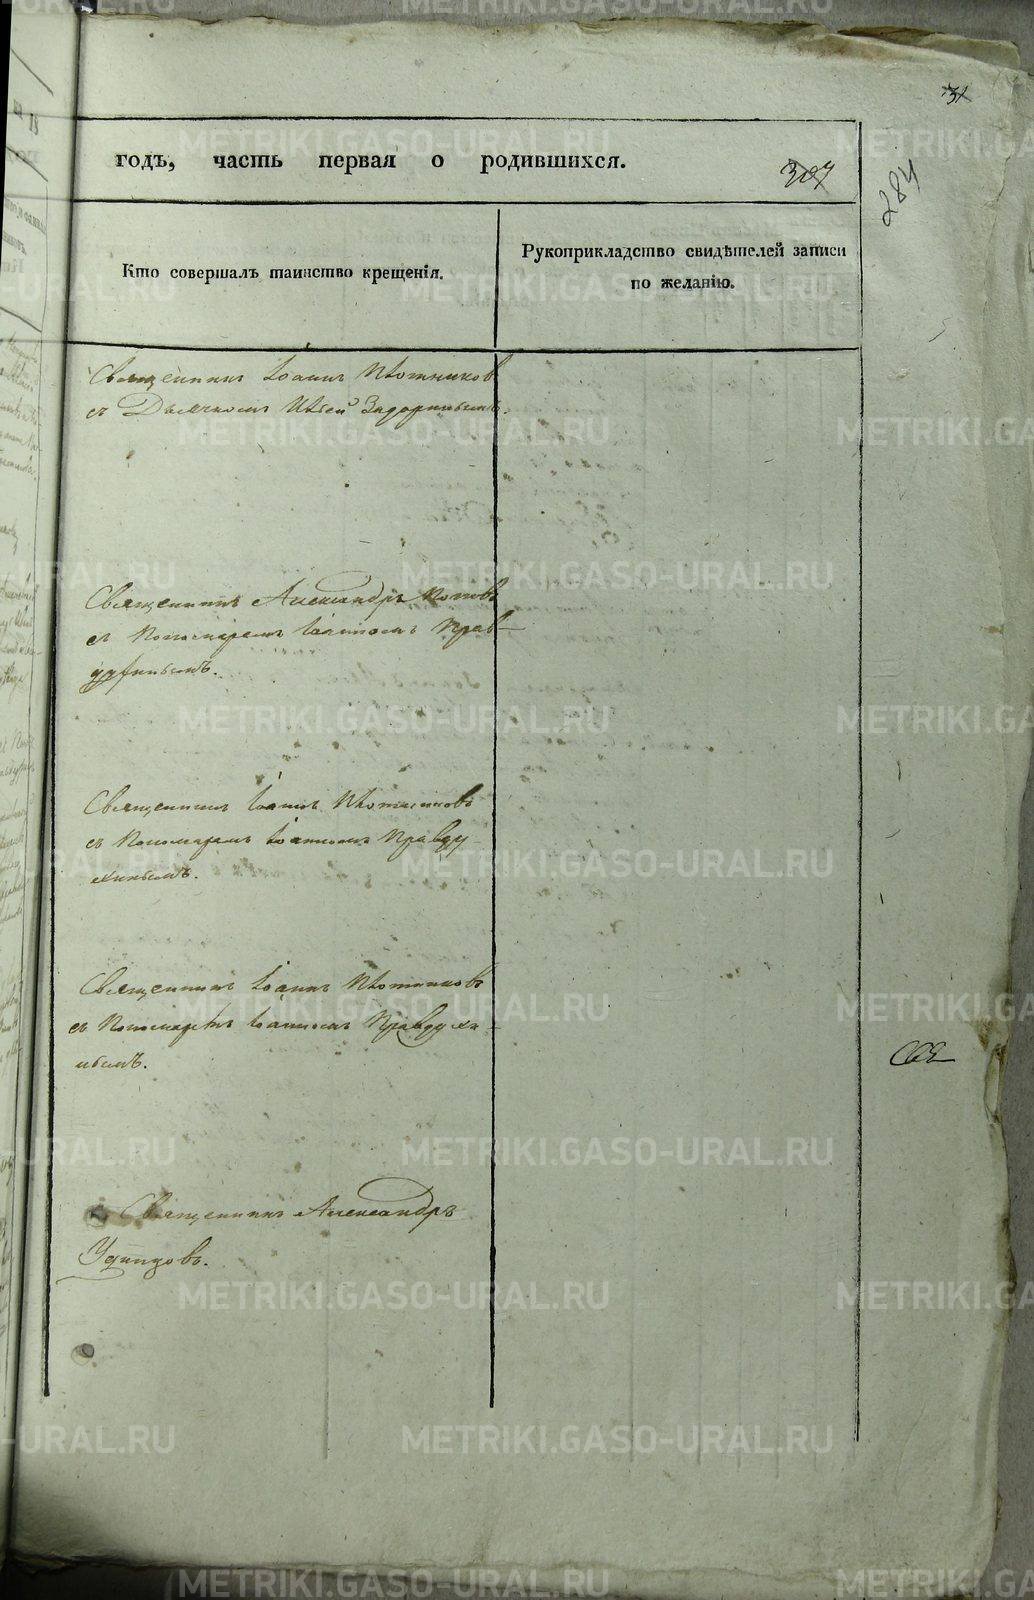 31
годъ, часть первая о родившихся.
307
284
Кто совершалъ таинство крещенія.
Рукоприкладство свидѣтелей записи
по желанію.
Священникъ Іоаннъ Плотниковъ
съ Дьячкомъ Задоринымъ.
Священникъ Александръ Поповъ
съ Пономаремъ Іоанномъ Прав-
духинымъ.
Священникъ Іоаннъ Плотниковъ
съ Пономаремъ Іоанномъ Правду-
хинымъ.
Священникъ Іоаннъ Плотниковъ
съ Пономаремъ Іоанномъ Правдухи-
нымъ.
Священникъ Александръ
Удинцовъ.
METRIKI.GASO-URAL.RU